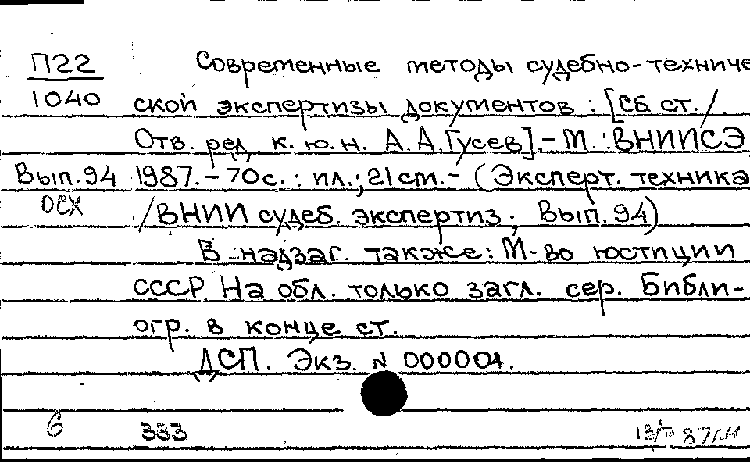 П22 Современные методы судебно-техниче
1040 ской экспертизы документов : [Сб. ст. /
Отв. ред. к. ю. н. А. А. Гусев]. - М. : ВНИИСЭ
Вып. 94 1987. - 70 с. : ил.; 21 см. - (Эксперт. техника
ОСХ /ВНИИ судеб. экспертиз; Вып. 94)
В надзаг. также: М-во юстиции
СССР. На обл. только загл. сер. Библи-
огр. в конце ст.
ДСП. Экз. N 000004.
6 333